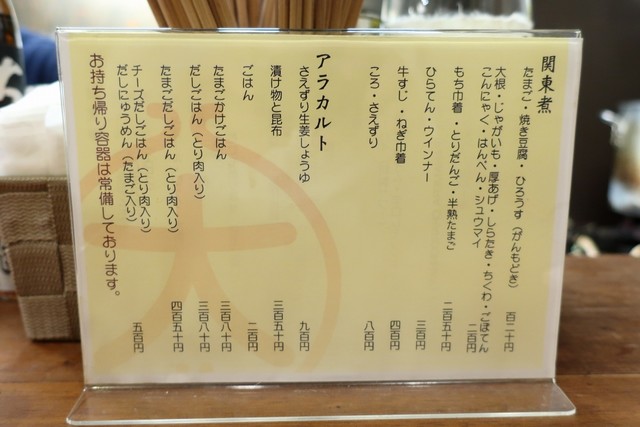 関東煮
たまご・焼き豆腐・ひろうす（がんもどき） 百二十円
大根・じゃがいも・厚あげ・しらたき・ちくわ・ごぼてん
こんにゃく・はんぺん・シュウマイ 二百円
もち巾着・とりだんご・半熟たまご 二百五十円
ひらてん・ウインナー 三百円
牛すじ・ねぎ巾着 四百円
ころ・さえずり 八百円
アラカルト
さえずり生姜しょうゆ 九百円
漬け物と昆布 三百五十円
ごはん 二百円
たまごかけごはん 三百八十円
だしごはん（とり肉入り） 三百八十円
たまごだしごはん（とり肉入り） 四百五十円
チーズだしごはん（とり肉入り）
だしにゅうめん（たまご入り） 五百円
お持ち帰り容器は常備しております。